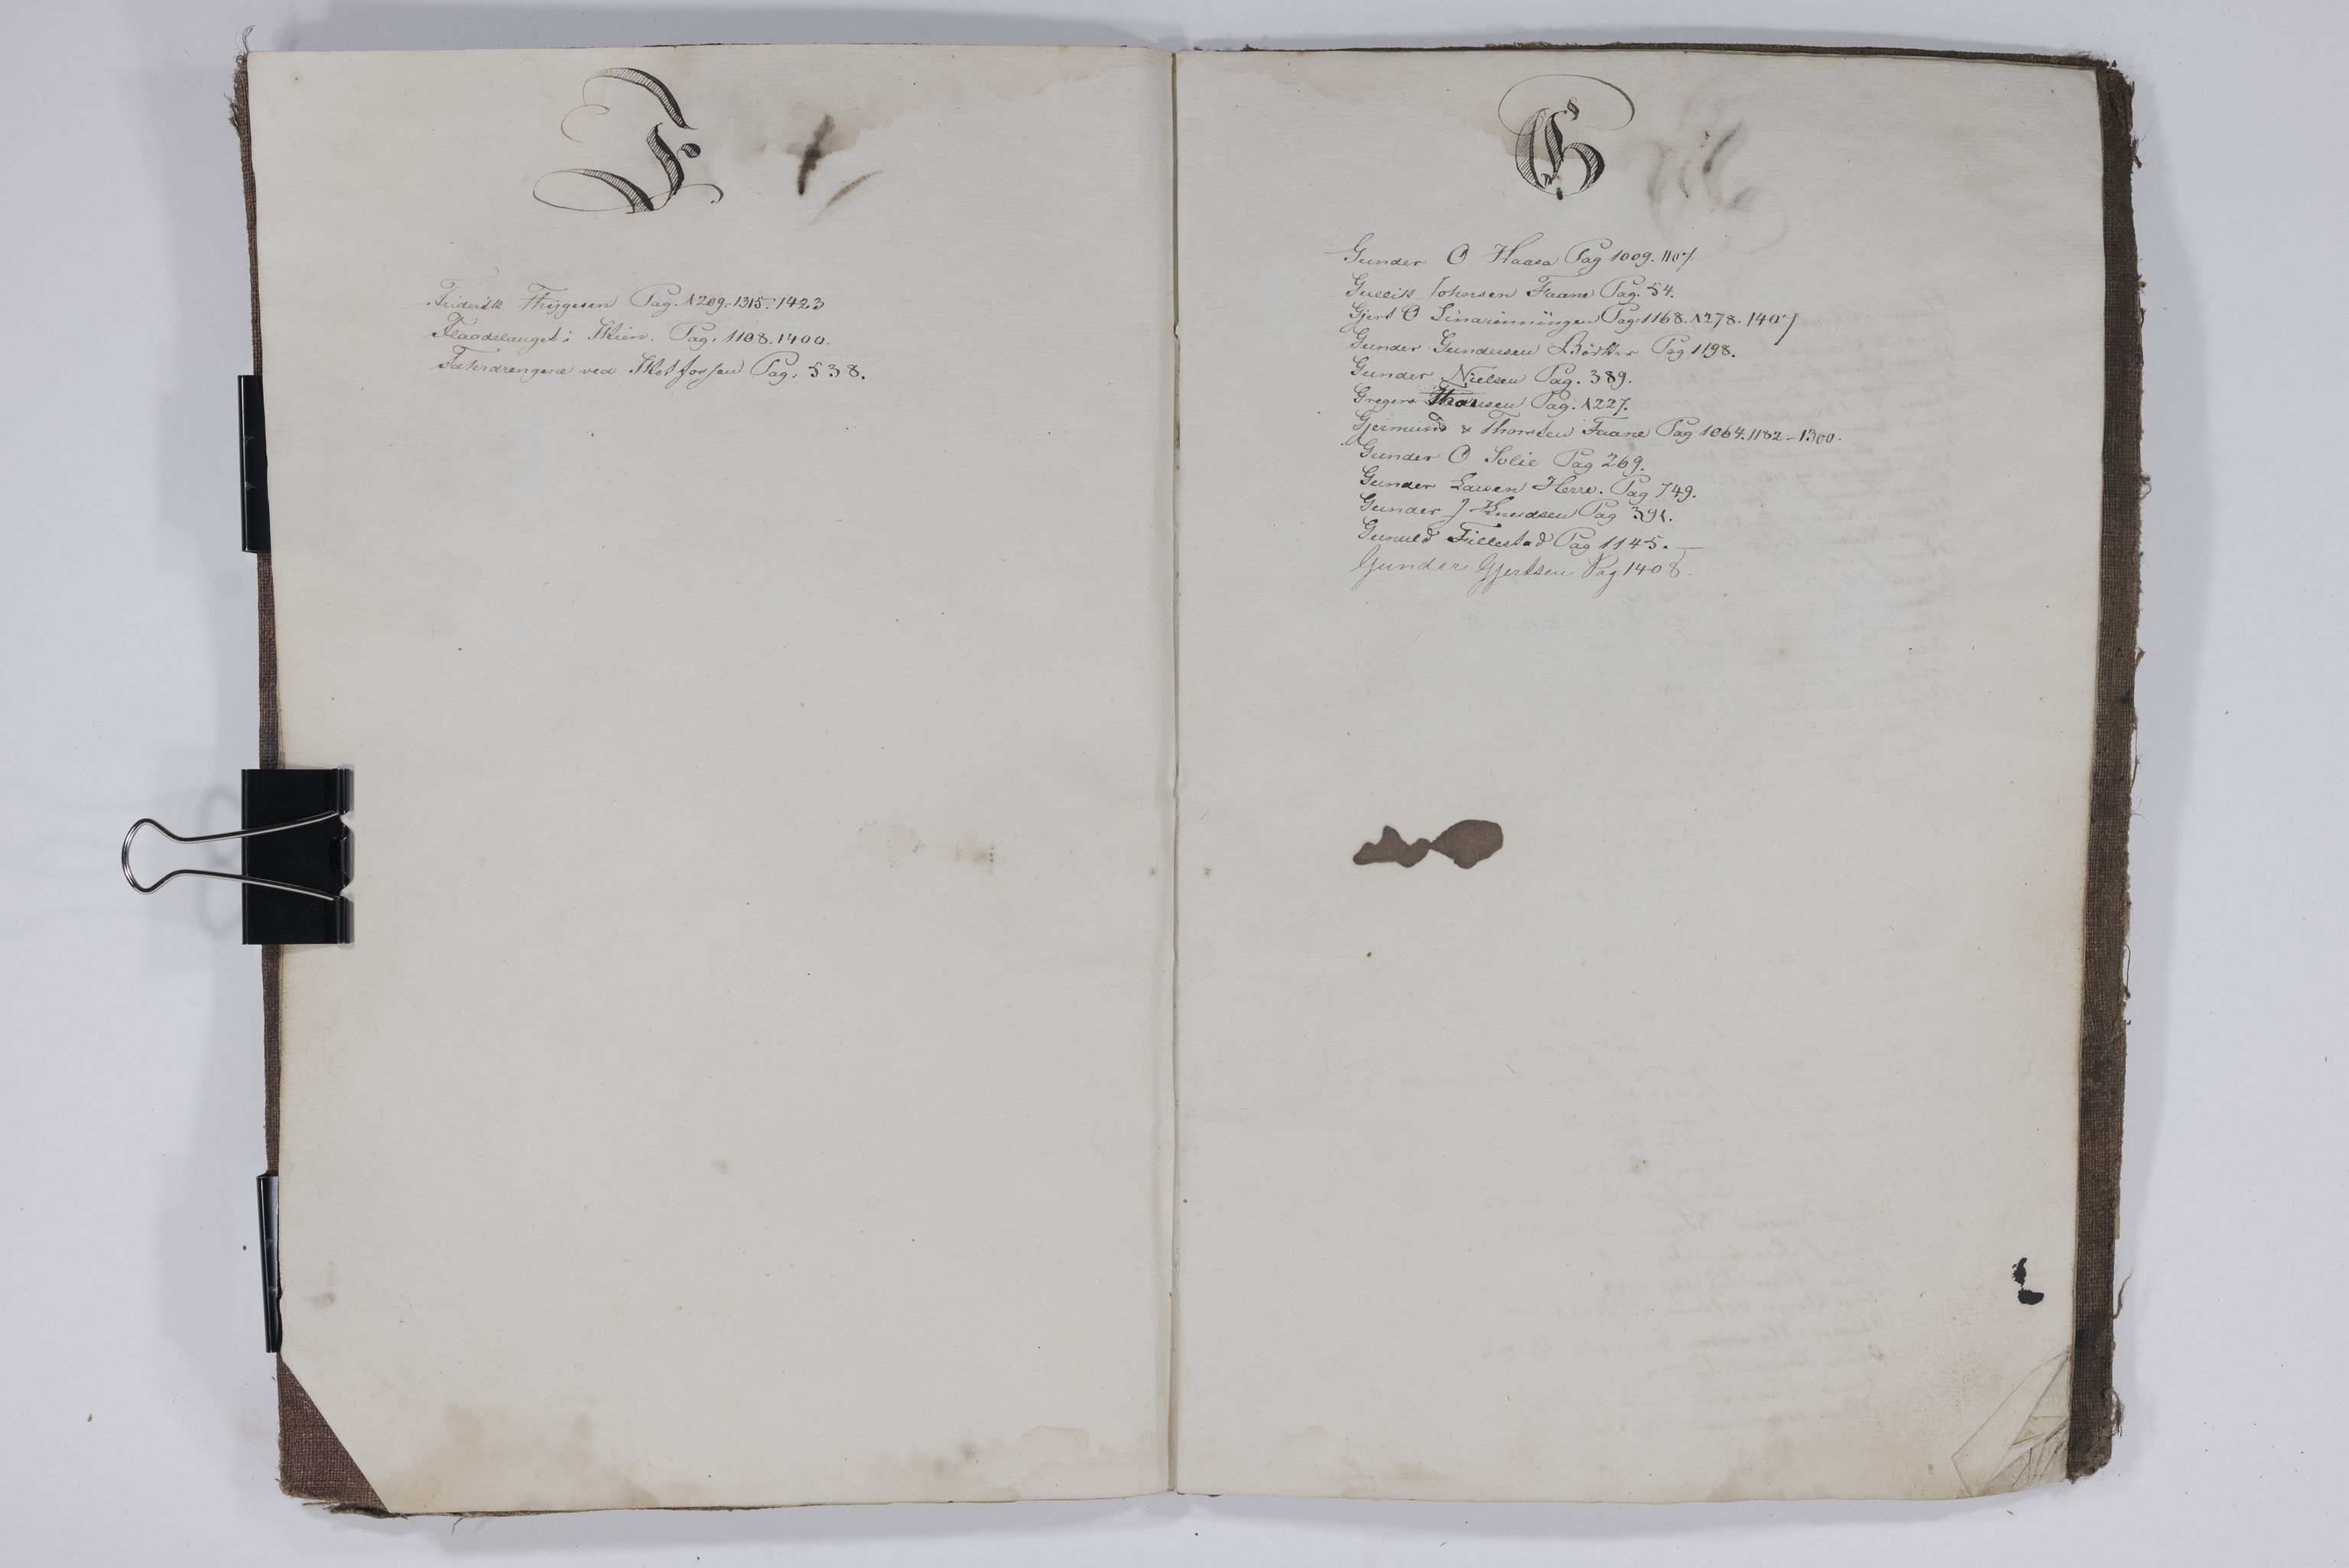 F
Friderik Thygesen Pag. 1209. 1315. 1423
Flaadelauget i Skien. Pag. 1108. 1400.
Fahrdrengene ved Skotfossen Pag. 538.
G
Gunder O Haasa Pag 1009. 1107
Gullik Johnsen Faane Pag. 54.
Gjert O Pag. 1168. 1278. 1407
Gunder Gundersen Pag 1198.
Gunder Nielsen Pag. 389.
Gregers Pag. 1227.
Gjermund & Thorsten Faane Pag 1064. 1182-1300.
Gunder O Solie Pag 269.
Gunder Larsen Herre. Pag 749.
Gunder J Knudsen Pag 391.
Gunuld Fillestad Pag 1145.
Gunder Gjertsen Pag 1408.